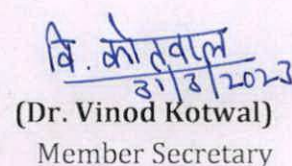 वि. कोतवाल
31/3/2023
(Dr. Vinod Kotwal)
Member Secretary